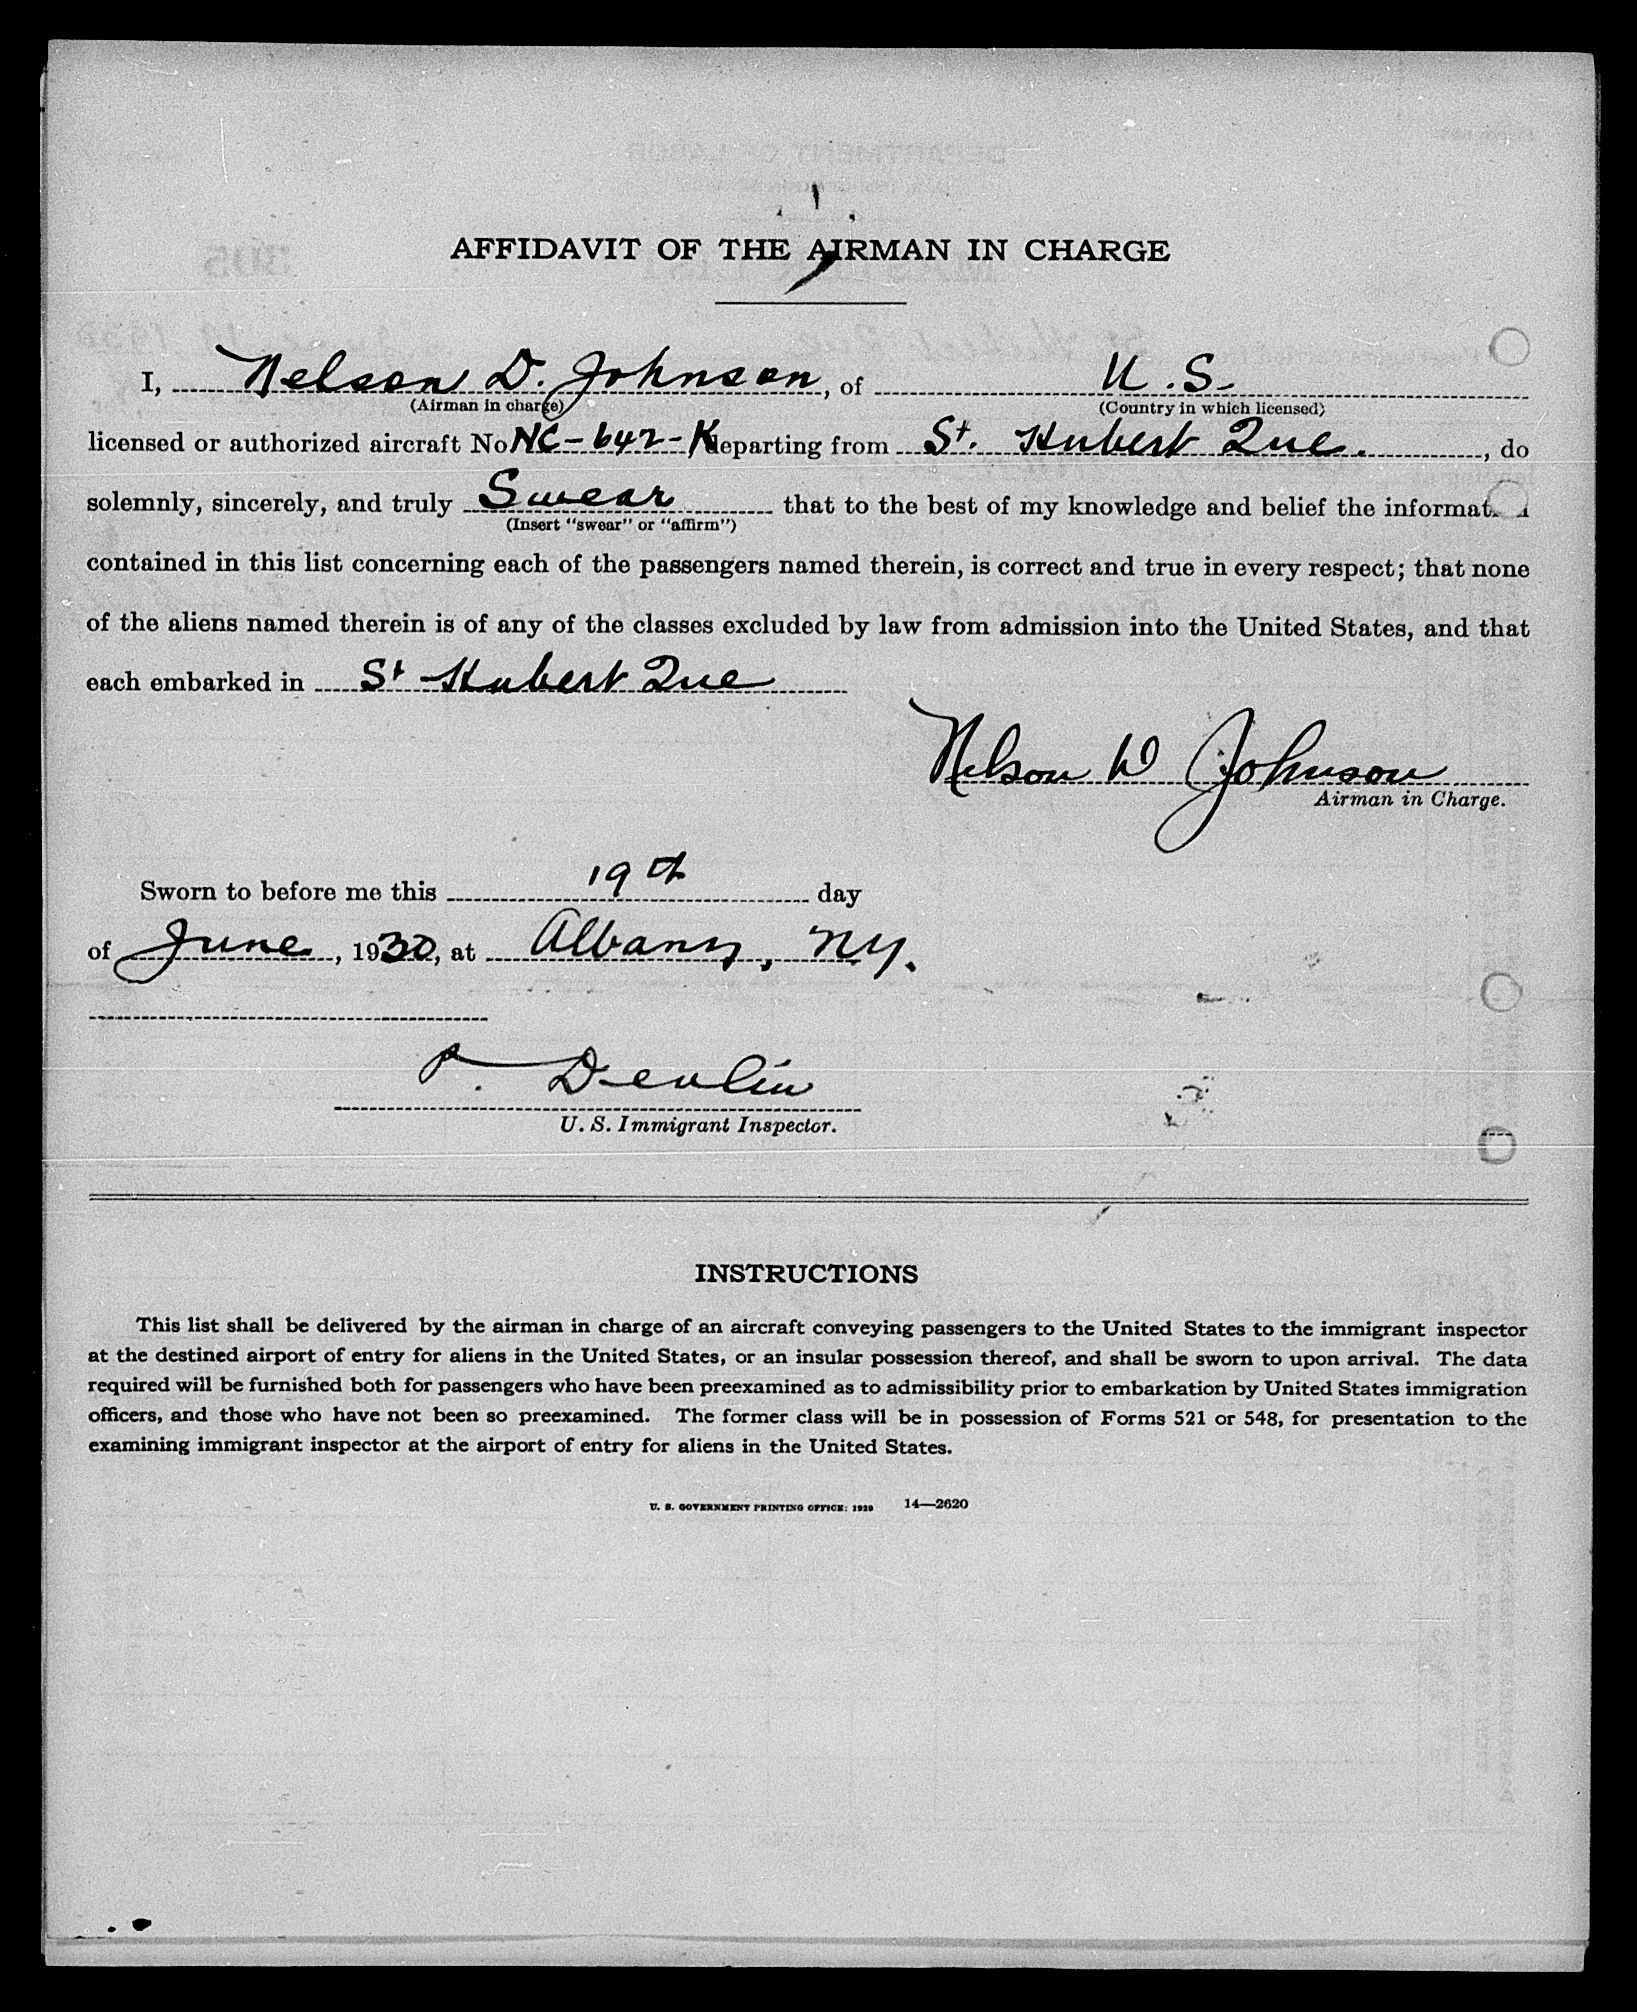 AFFIDAVIT OF THE AIRMAN IN CHARGE
I, Nelson D. Johnson, of U.S.
(Airman in charge) (Country in which licensed)
licensed or authorized aircraft No NC-642-K departing from St. Hubert Que., do
solemnly, sincerely, and truly Swear that to the best of my knowledge and belief the informat
(Insert "swear" or "affirm")
contained in this list concerning each of the passengers named therein, is correct and true in every respect; that none
of the aliens named therein is of any of the classes excluded by law from admission into the United States, and that
each embarked in St Hubert Que
Nelson D Johnson
Airman in Charge.
Sworn to before me this 19th day
of June, 1930, at Albany, N.Y.
P. Devlin
U. S. Immigrant Inspector.
INSTRUCTIONS
This list shall be delivered by the airman in charge of an aircraft conveying passengers to the United States to the immigrant inspector
at the destined airport of entry for aliens in the United States, or an insular possession thereof, and shall be sworn to upon arrival. The data
required will be furnished both for passengers who have been preexamined as to admissibility prior to embarkation by United States immigration
officers, and those who have not been so preexamined. The former class will be in possession of Forms 521 or 548, for presentation to the
examining immigrant inspector at the airport of entry for aliens in the United States.
U. S. GOVERNMENT PRINTING OFFICE: 1929 14—2620